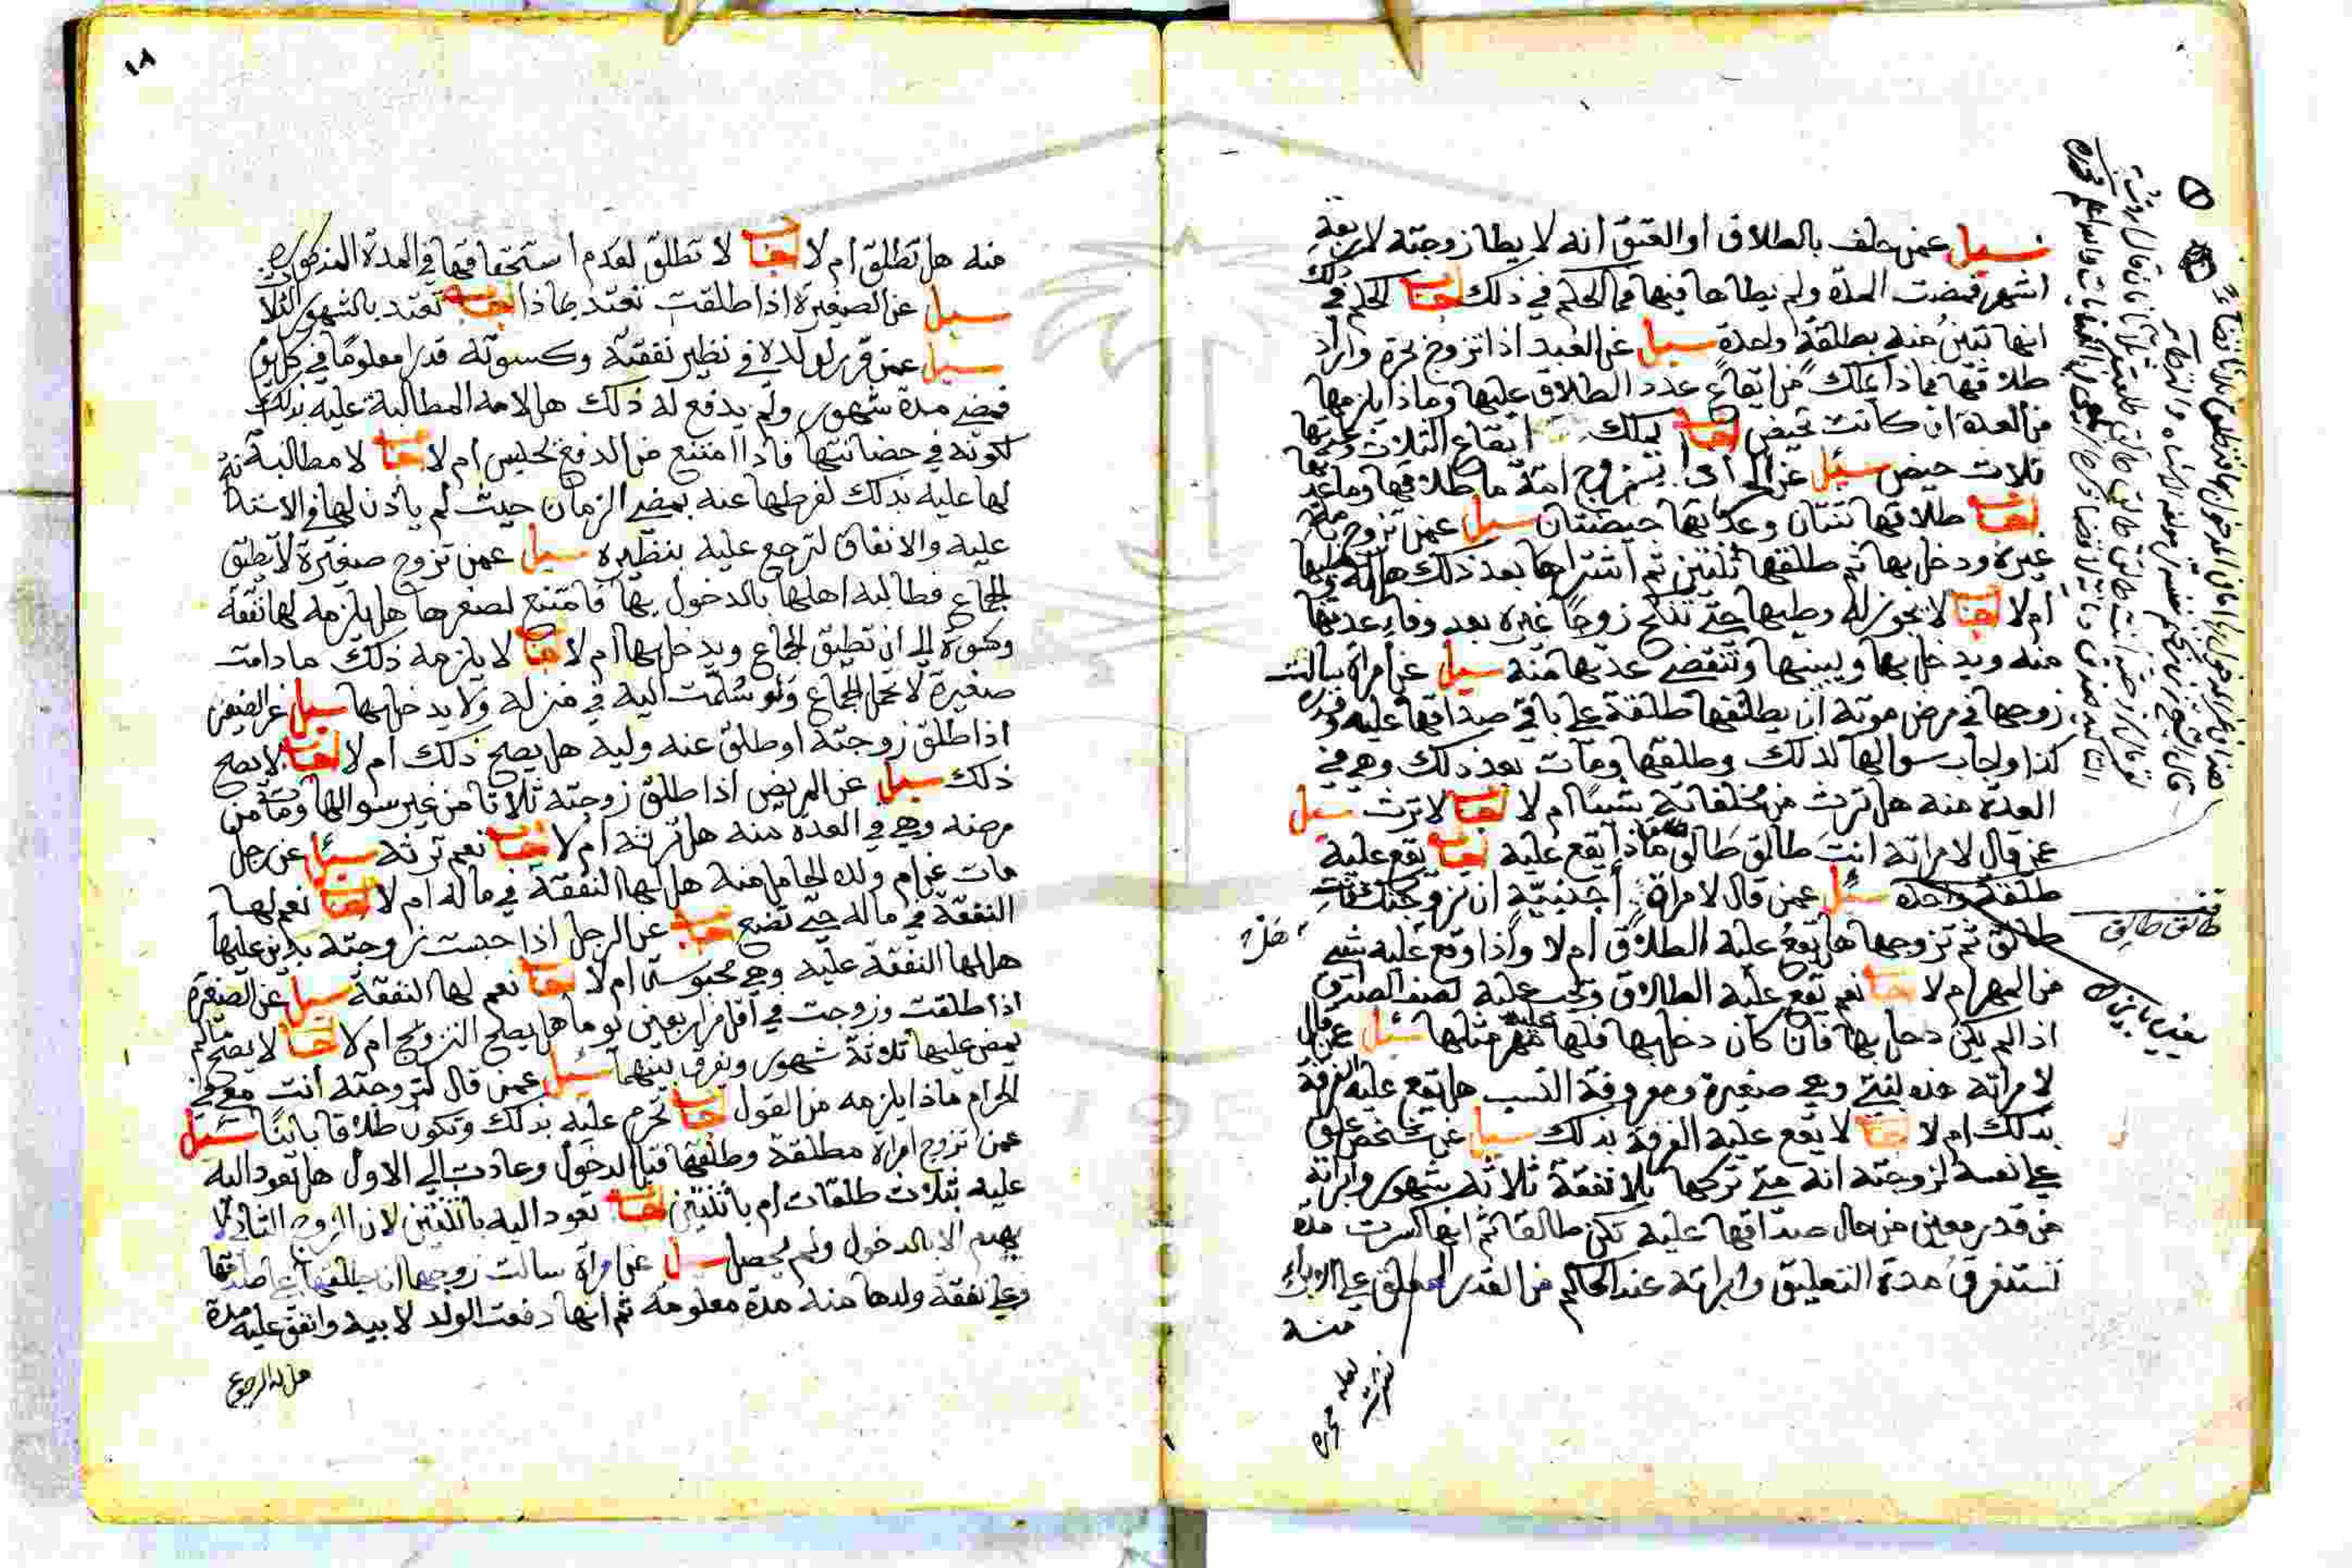 سيل عمن حلف بالطلاق او العتق انه لا يطا زوجته لاربعة
اشهر فمضت المدة ولم يطاها فيها فما الحكم في ذلك اجاب الحكم في ذلك
انها تبين منه بطلقة واحدة سيل عن العبد اذا تزوج بحرة واراد
طلاقها فماذا يملك من ايقاع عدد الطلاق عليها وماذا يلزمها
من العدة ان كانت تحيض اجاب يملك ايقاع الثلاث وعدتها
ثلاث حيض سئل عن الحر اذا تزوج امة ما طلاقها وما عدتها
اجاب طلاقها ثنتان وعدتها حيضتان سيل عمن تزوج امة
غيره ودخل بها ثم طلقها ثنتين ثم اشتراها بعد ذلك هل له وطيها
ام لا اجاب لا يجوز له وطيها حتى تنكح زوجا غيره بعد وفاء عدتها
منه ويدخل بها ويبينها وتنقضي عدتها منه سيل عن امراة سالت
زوجها في مرض موته ان يطلقها طلقة على باقي صداقها عليه وقدره
كذا واجاب سوالها لذلك وطلقها ومات بعد ذلك وهي في
العدة منه هل ترث من مخلفاته شيئا ام لا اجاب لا ترث سيل
عمن قال لامراته انت طالق طالق ماذا يقع عليه اجاب يقع عليه
طلقة واحدة سئل عمن قال لامراة اجنبية ان تزوجتك فانت
طالق ثم تزوجها هل يقع عليه الطلاق ام لا واذا وقع عليه شي
من المهر ام لا اجاب نعم يقع عليه الطلاق ويجب عليه نصف الصداق
اذا لم يكن دخل بها فان كان دخل بها فلها عليه مهر مثلها سئل عمن قال
لامراته هذه بنتي وهي صغيرة ومعروفة النسب هل تقع عليه الفرقة
بذلك ام لا اجاب لا يقع عليه الفرقة بذلك سيل عن شخص علق
على نفسه لزوجته انه متى تركها بلا نفقة ثلاثة شهور وابراته
من قدر معين من حال صداقها عليه تكن طالقا ثم انها كسرت مدة
تستغرق مدة التعليق وابراته عند الحاكم من القدر المعلق على الابراء
منه
طالق طالق
يعني بانت
١٨
منه هل تطلق ام لا اجاب لا تطلق لعدم استحقاقها في المدة المذكورة
سيل عن الصغيرة اذا طلقت تعتد بماذا اجاب تعتد بالشهور الثلاث
سيل عمن قرر لولده في نظير نفقته وكسوته قدرا معلوما في كل يوم
فمضى مدة شهور ولم يدفع له ذلك هل لامه المطالبة عليه بذلك
لكونه في حضانتها فاذا امتنع من الدفع يحبس ام لا اجاب لا مطالبة
لها عليه بذلك لفرطها عنه بمضي الزمان حيث لم ياذن لها في الاستدانة
عليه والانفاق لترجع عليه بنظيره سيل عمن تزوج صغيرة لا تطيق
الجماع فطالبه اهلها بالدخول بها فامتنع لصغرها هل يلزمه لها نفقة
وكسوة الى ان تطيق الجماع ويدخل بها ام لا اجاب لا يلزمه ذلك ما دامت
صغيرة لا تحمل الجماع ولو سُلمت اليه في منزله ولا يدخل بها سيل عن الصغير
اذا طلق زوجته او طلق عنه وليه هل يصح ذلك ام لا اجاب لا يصح
ذلك سيل عن المريض اذا طلق زوجته ثلاثا من غير سوالها ومات من
مرضه وهي في العدة منه هل ترثه ام لا اجاب نعم ترثه سيل عن رجل
مات عن ام ولده الحامل منه هل لها النفقة في ماله ام لا اجاب نعم لها
النفقة في ماله حتى تضع سيل عن الرجل اذا حبست زوجته بدين عليها
هل لها النفقة عليه وهي محبوسة ام لا اجاب نعم لها النفقة سيل عن الصغيرة
اذا طلقت وزوجت في اقل من اربعين يوما هل يصح التزويج ام لا اجاب لا يصح مالم
يمض عليها ثلاثة شهور ويفرق بينهما سئل عمن قال لزوجته انت معي في
الحرام ماذا يلزمه من القول اجاب تحرم عليه بذلك ويكون طلاقا باينا سئل
عمن تزوج امراة مطلقة وطلقها قبل الدخول وعادت الى الاول هل تعود اليه
عليه بثلاث طلقات ام باثنتين اجاب تعود اليه باثنتين لان الزوج الثاني لا
يهدم الا بالدخول ولم يحصل سيل عن امراة سالت زوجها ان يطلقها على صداقها
وعلى نفقة ولدها منه مدة معلومة ثم انها دفعت الولد لابيه وانفق عليه مدة
هل له الرجوع